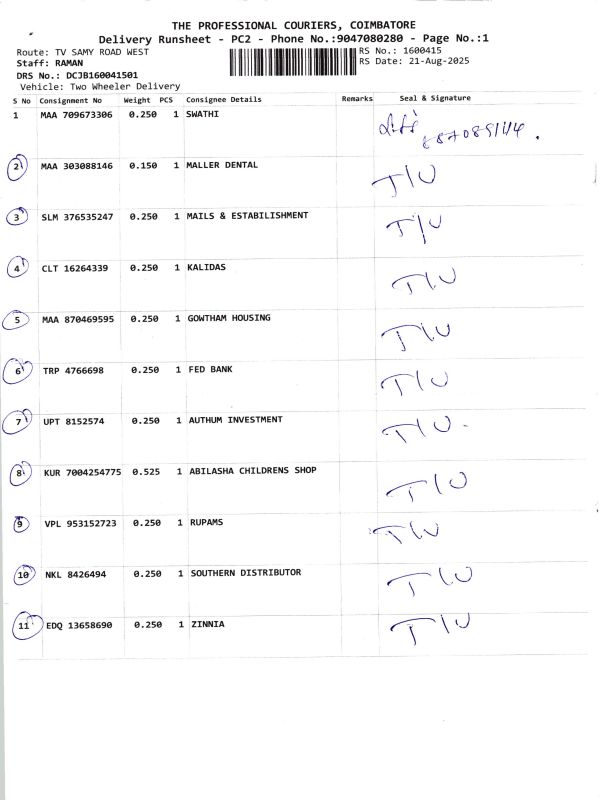 THE PROFESSIONAL COURIERS, COIMBATORE
Delivery Runsheet - PC2 - Phone No.:9047080280 - Page No.:1
Route: TV SAMY ROAD WEST RS No.: 1600415
Staff: RAMAN RS Date: 21-Aug-2025
DRS No.: DCJB160041501
Vehicle: Two Wheeler Delivery
S No Consignment No Weight PCS Consignee Details Remarks Seal & Signature
1 MAA 709673306 0.250 1 SWATHI
2 MAA 303088146 0.150 1 MALLER DENTAL T/U
3 SLM 376535247 0.250 1 MAILS & ESTABILISHMENT T/U
4 CLT 16264339 0.250 1 KALIDAS T/U
5 MAA 870469595 0.250 1 GOWTHAM HOUSING T/U
6 TRP 4766698 0.250 1 FED BANK T/U
7 UPT 8152574 0.250 1 AUTHUM INVESTMENT T/U
8 KUR 7004254775 0.525 1 ABILASHA CHILDRENS SHOP T/U
9 VPL 953152723 0.250 1 RUPAMS T/U
10 NKL 8426494 0.250 1 SOUTHERN DISTRIBUTOR T/U
11 EDQ 13658690 0.250 1 ZINNIA T/U